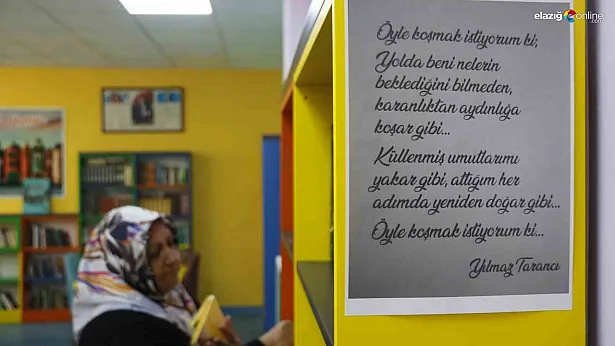 elazığonline.com
Öyle koşmak istiyorum ki;
Yolda beni nelerin
beklediğini bilmeden,
karanlıktan aydınlığa
koşar gibi...
Küllenmiş umutlarımı
yakar gibi, attığım her
adımda yeniden doğar gibi...
Öyle koşmak istiyorum ki...
Yılmaz Tarancı